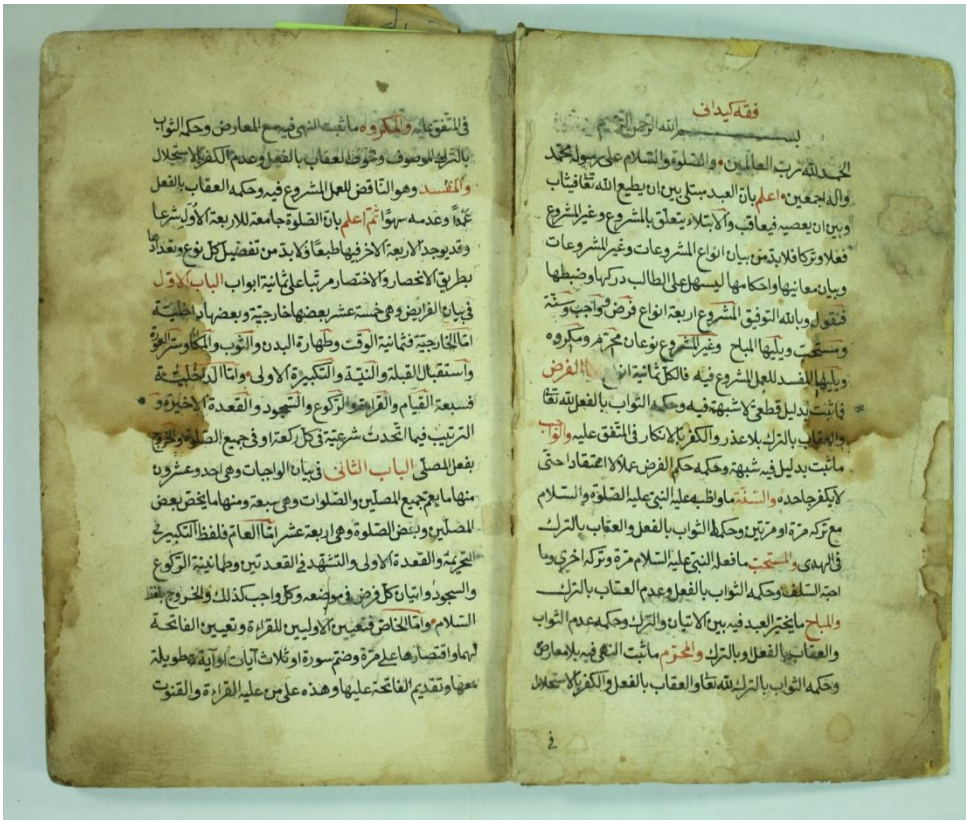 فقه كيدانى
بسم الله الرحمن الرحيم
الحمد لله رب العالمين والصلوة والسلام على رسوله محمد
واله اجمعين اعلم بان العبد مبتلى بين ان يطيع الله تعا فيثاب
وبين ان يعصيه فيعاقب والابتلاء يتعلق بالمشروع وغير المشروع
فعلا وتركا فلا بد من بيان انواع المشروعات وغير المشروعات
وبيان معانيها واحكامها ليسهل على الطالب دركها وضبطها
فنقول وبالله التوفيق المشروع اربعة انواع فرض وواجب وسنة
ومستحب ويليها المباح وغير المشروع نوعان محرم ومكروه
ويليها المفسد للعمل المشروع فيه فالكل ثمانية انواع الفرض
فما ثبت بدليل قطعى لا شبهة فيه وحكمه الثواب بالفعل لله تعا
والعقاب بالترك بلا عذر والكفر بالانكار فى المتفق عليه والواجب
ما ثبت بدليل فيه شبهة وحكمه حكم الفرض عملا لا اعتقادا حتى
لا يكفر جاحده والسنة ما واظب عليه النبى عليه الصلوة والسلام
مع تركه مرة او مرتين وحكمه الثواب بالفعل والعقاب بالترك
فى الهدى والمستحب ما فعل النبى عليه السلام مرة وتركه اخرى وما
احبه السلف وحكمه الثواب بالفعل وعدم العقاب بالترك
والمباح ما يخير العبد فيه بين الاتيان والترك وحكمه عدم الثواب
والعقاب بالفعل وبالترك والمحرم ما ثبت النهى فيه بلا معارض
وحكمه الثواب بالترك لله تعا والعقاب بالفعل والكفر بالاستحلال
فى
فى المتفق عليه والمكروه ما ثبت النهى فيه مع المعارض وحكمه الثواب
بالترك الموصوف وخوف العقاب بالفعل وعدم الكفر بالاستحلال
والمفسد وهو الناقض للعمل المشروع فيه وحكمه العقاب بالفعل
عمدا وعدمه سهوا ثم اعلم بان الصلوة جامعة للاربعة الاول شرعا
وقد يوجد الاربعة الاخر فيها طبعا فلا بد من تفصيل كل نوع وتعدادها
بطريق الانحصار والاختصار مرتبا على ثمانية ابواب الباب الاول
فى بيان الفرايض وهى خمسة عشر بعضها خارجية وبعضها داخلية
اما الخارجية فثمانية الوقت وطهارة البدن والثوب والمكان وستر العورة
واستقبال القبلة والنية والتكبيرة الاولى واما الداخلية
فسبعة القيام والقراءة والركوع والسجود والقعدة الاخيرة و
الترتيب فيما اتحدت شرعيته فى كل ركعة او فى جميع الصلوة والخروج
بفعل المصلى الباب الثانى فى بيان الواجبات وهى احد وعشرون
منها ما يعم جميع المصلين والصلوات وهى سبعة ومنها ما يخص بعض
المصلين وبعض الصلوة وهى اربعة عشر اما العام فلفظ التكبير فى
التحريمة والقعدة الاولى والتشهد فى القعدتين وطمانينة الركوع
والسجود واتيان كل فرض فى موضعه وكل واجب كذلك والخروج بلفظ
السلام واما الخاص فتعيين الاوليين للقراءة وتعيين الفاتحة
لهما واقتصارها على مرة وضم سورة او ثلاث آيات او آية طويلة
معها وتقديم الفاتحة عليها وهذه على من عليه القراءة والقنوت